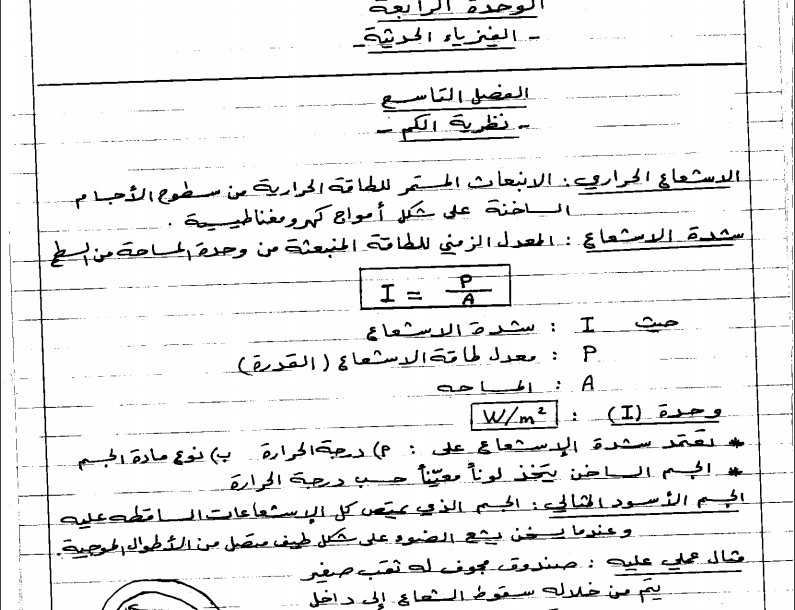 الوحدة الرابعة
- الفيزياء الحديثة -
الفصل التاسع
- نظرية الكم -
الاستشعاع الحراري : الانبعاث المستمر للطاقة الحرارية من سطوح الأجسام
الساخنة على شكل أمواج كهرومغناطيسية .
شدة الاستشعاع : المعدل الزمني للطاقة المنبعثة من وحدة المساحة من السطح
I = P / A
حيث I : شدة الاستشعاع
P : معدل طاقة الاستشعاع (القدرة)
A : المساحه
وحدة (I) : W/m²
* تعتمد شدة الإستشعاع على : ٩) درجة الحرارة ب) نوع مادة الجسم
* الجسم الساخن يتخذ لوناً معيّناً حسب درجة الحرارة
الجسم الأسود المثالي : الجسم الذي يمتص كل الإستشعاعات الساقطه عليه
وعندما يسخن يشع الضوء على شكل طيف متصل من الأطوال الموجية .
مثال عملي عليه : صندوق مجوف له ثقب صغير
يتم من خلاله سقوط الشعاع إلى داخل